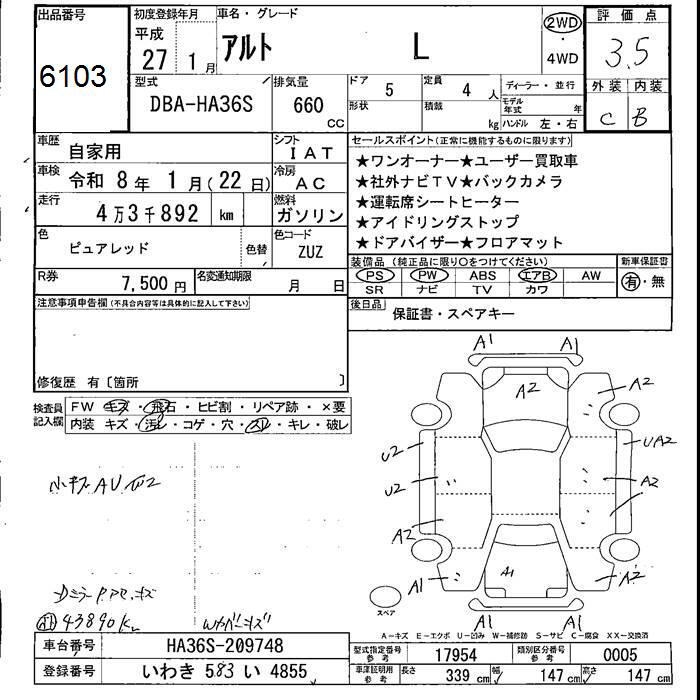 出品番号
6103
初度登録年月
平成
27 1月
車名・グレード
アルト L
2WD
・
4WD
評価点
3.5
外装 内装
C B
型式
DBA-HA36S
排気量
660
CC
ドア 5
形状
定員 4 人
積載 kg
ディーラー・並行
モデル年式 年
ハンドル 左・右
車歴
自家用
シフト
IAT
車検
令和 8年 1月(22日)
冷房
AC
走行
4万3千892 km
燃料
ガソリン
色
ピュアレッド
色替
色コード
ZUZ
R券
7,500円
名変通知期限
月 日
セールスポイント(正常に機能するものに限ります)
★ワンオーナー★ユーザー買取車
★社外ナビTV★バックカメラ
★運転席シートヒーター
★アイドリングストップ
★ドアバイザー★フロアマット
装備品 (純正品に限り○をつけてください)
PS PW ABS エアB AW
SR ナビ TV カワ
新車保証書
有・無
後日品
保証書・スペアキー
注意事項申告欄(不具合内容等は具体的に記入して下さい)
修復歴 有〔箇所 〕
検査員
記入欄
FW キズ・飛石・ヒビ割・リペア跡・×要
内装 キズ・汚レ・コゲ・穴・スレ・キレ・破レ
小キズ AU
キズ
43890K
キズ
A1 A1
A2
A2
U2
UA2
U2
A2
A2
A1
A1
A2
A1 A1
スペア
A-キズ E-エクボ U-凹み W-補修跡 S-サビ C-腐食 XX-交換済
車台番号
HA36S-209748
登録番号
いわき 583 い 4855
型式指定番号
参考
17954
類別区分番号
参考
0005
車庫証明用
参考
長さ 339 cm
幅 147 cm
高さ 147 cm